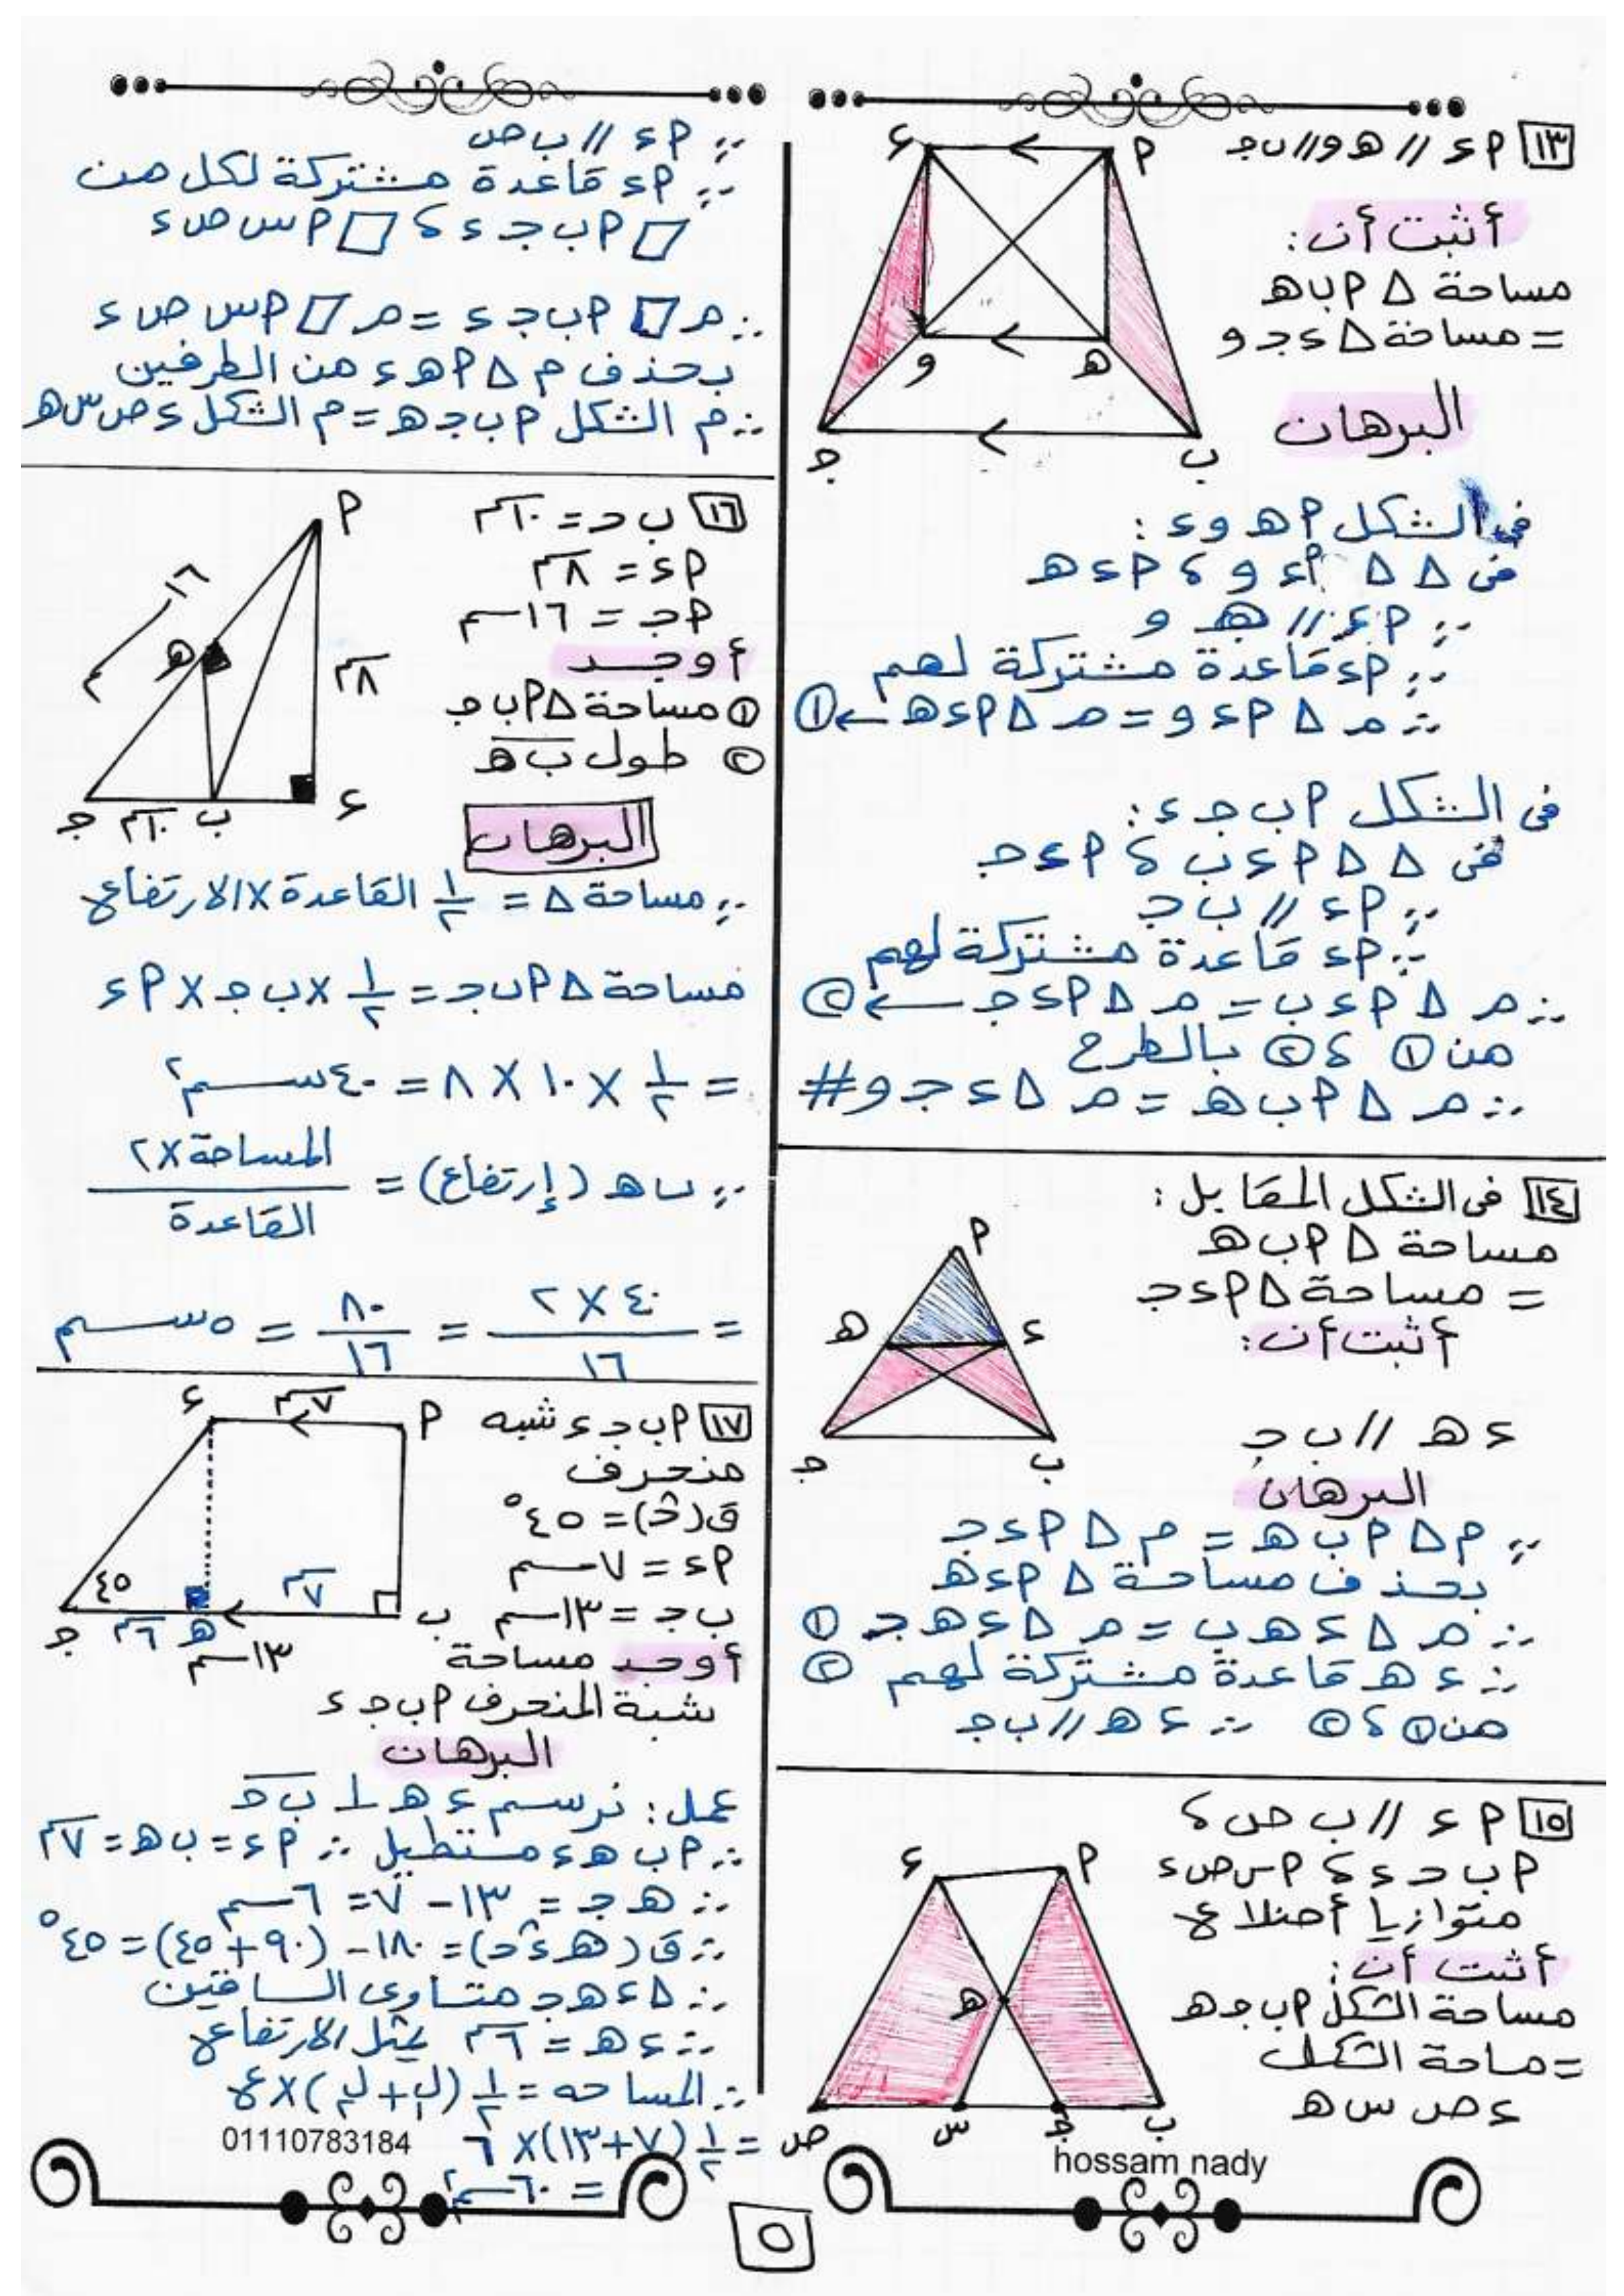 ١٣ ٩ء // هـ و // ب جـ
أثبت أن:
مساحة △ ٩ ب هـ
= مساحة △ ء جـ و
البرهان
ء ٩
و هـ
جـ ب
فى الشكل ٩ هـ و ء :
فى △ △ ٩ ء و ، ٩ ء هـ
∵ ٩ ء // هـ و
∵ ٩ ء قاعدة مشتركة لهم
∴ م △ ٩ ء و = م △ ٩ ء هـ ← ①
فى الشكل ٩ ب جـ ء :
فى △ △ ٩ ء ب ، ٩ ء جـ
∵ ٩ ء // ب جـ
∵ ٩ ء قاعدة مشتركة لهم
∴ م △ ٩ ء ب = م △ ٩ ء جـ ← ②
من ① ، ② بالطرح
∴ م △ ٩ ب هـ = م △ ء جـ و #
١٤ فى الشكل المقابل :
مساحة △ ٩ ب هـ
= مساحة △ ٩ ء جـ
أثبت أن:
ء هـ // ب جـ
البرهان
٩
هـ ء
جـ ب
∵ م △ ٩ ب هـ = م △ ٩ ء جـ
بحذف مساحة △ ٩ ء هـ
∴ م △ ء هـ ب = م △ ء هـ جـ ①
∴ ء هـ قاعدة مشتركة لهم ②
من ① ، ② ∴ ء هـ // ب جـ
١٥ ٩ ء // ب ص ،
٩ ب جـ ء ، ٩ س ص ء
متوازيا أضلاع
أثبت أن:
مساحة الشكل ٩ ب جـ هـ
= مساحة الشكل
ء ص س هـ
ء ٩
هـ
ص س جـ ب
hossam nady
∵ ٩ ء // ب ص
∵ ٩ ء قاعدة مشتركة لكل من
▱ ٩ ب جـ ء ، ▱ ٩ س ص ء
∴ م ▱ ٩ ب جـ ء = م ▱ ٩ س ص ء
بحذف م △ ٩ هـ ء من الطرفين
∴ م الشكل ٩ ب جـ هـ = م الشكل ء ص س هـ
١٦ ب جـ = ١٠سم
٩ ء = ٨سم
٩ جـ = ١٦سم
أوجد
① مساحة △ ٩ ب جـ
② طول ب هـ
البرهان
٩
١٦سم
هـ
٨سم
جـ ١٠سم ب ء
∵ مساحة △ = ١/٢ القاعدة × الارتفاع
مساحة △ ٩ ب جـ = ١/٢ × ب جـ × ٩ ء
= ١/٢ × ١٠ × ٨ = ٤٠ سم٢
∵ ب هـ (إرتفاع) = المساحة × ٢ / القاعدة
= ٤٠ × ٢ / ١٦ = ٨٠ / ١٦ = ٥ سم
١٧ ٩ ب جـ ء شبه
منحرف
ق(جـ) = ٤٥°
٩ ء = ٧ سم
ب جـ = ١٣ سم
أوجد مساحة
شبة المنحرف ٩ ب جـ ء
البرهان
ء ٧سم ٩
٤٥ ٧سم
جـ ٦سم هـ ب
١٣سم
عمل: نرسم ء هـ ⊥ ب جـ
∴ ٩ ب هـ ء مستطيل ∴ ٩ ء = ب هـ = ٧سم
∴ هـ جـ = ١٣ - ٧ = ٦ سم
∴ ق(هـ ء جـ) = ١٨٠ - (٩٠ + ٤٥) = ٤٥°
∴ △ ء هـ جـ متساوى الساقين
∴ ء هـ = ٦سم يمثل الارتفاع
∴ المساحه = ١/٢ (ل١ + ل٢) × ع
= ١/٢ (٧ + ١٣) × ٦
= ٦٠ سم٢
01110783184
٥